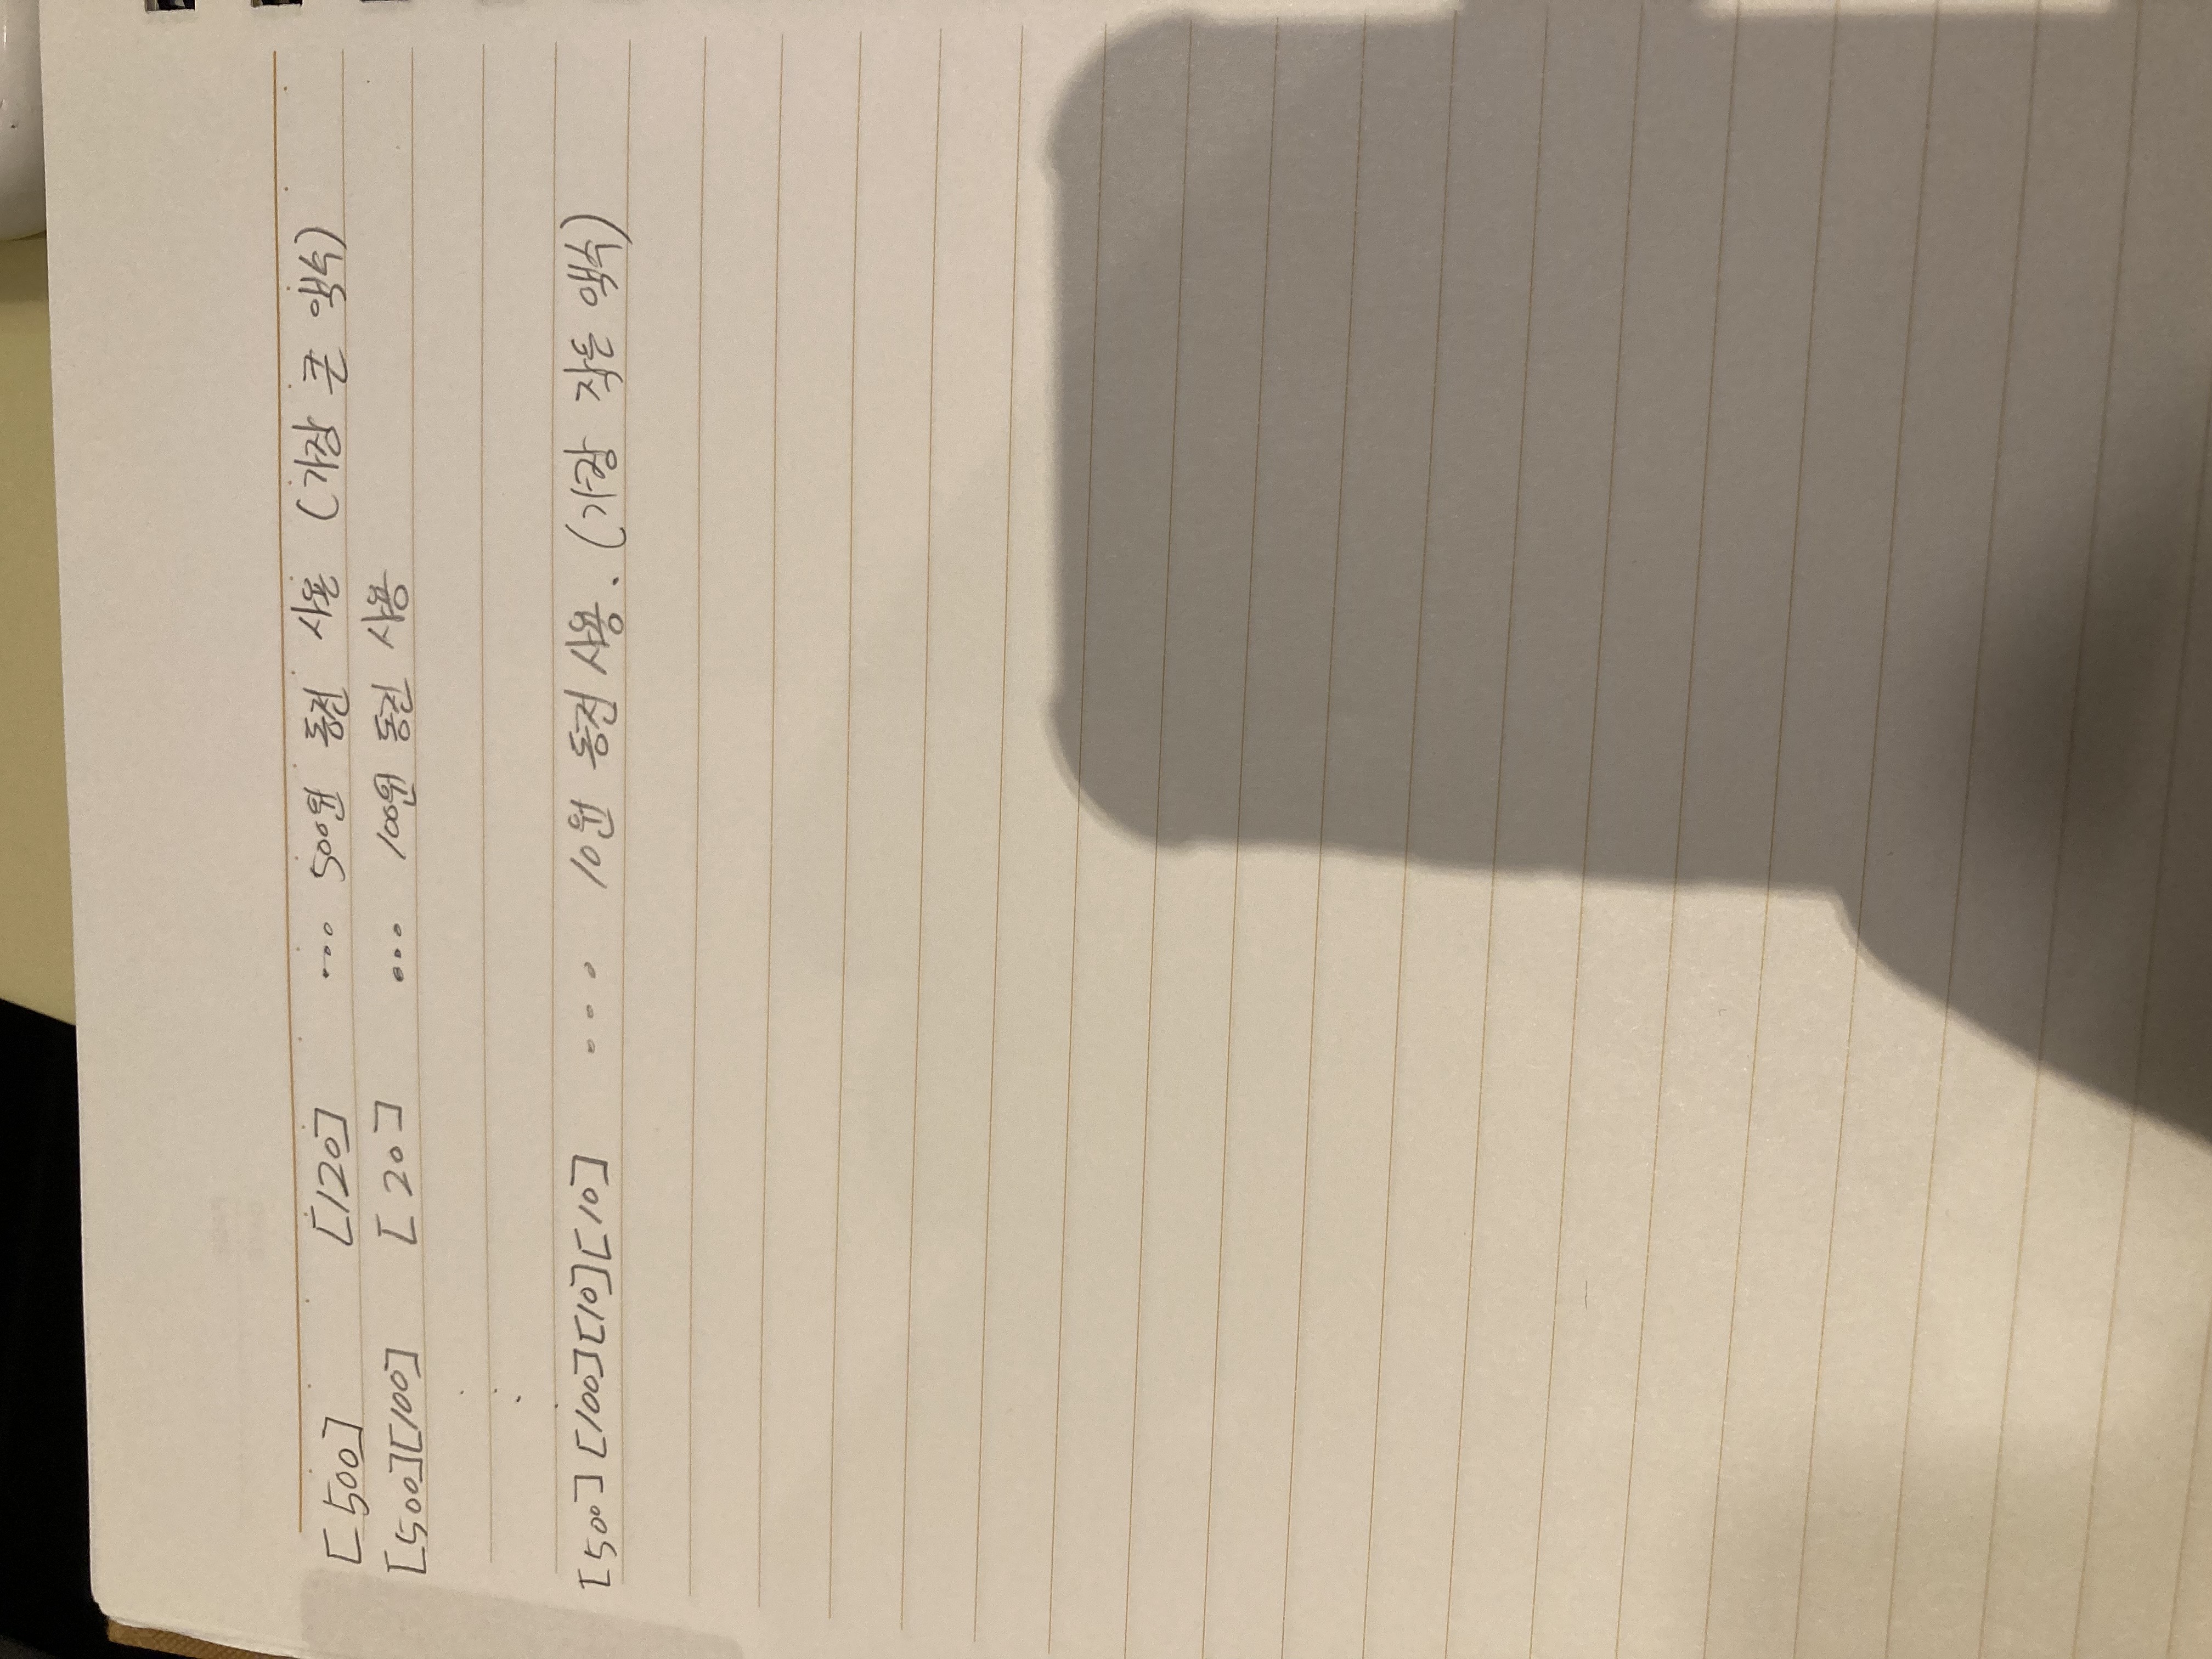 [500] [120] ... 500원 동전 사용 (가장 큰 액수)
[500][100] [20] ... 100원 동전 사용
[500][100][10][10] ... 10원 동전 사용. (가장 작은 액수)